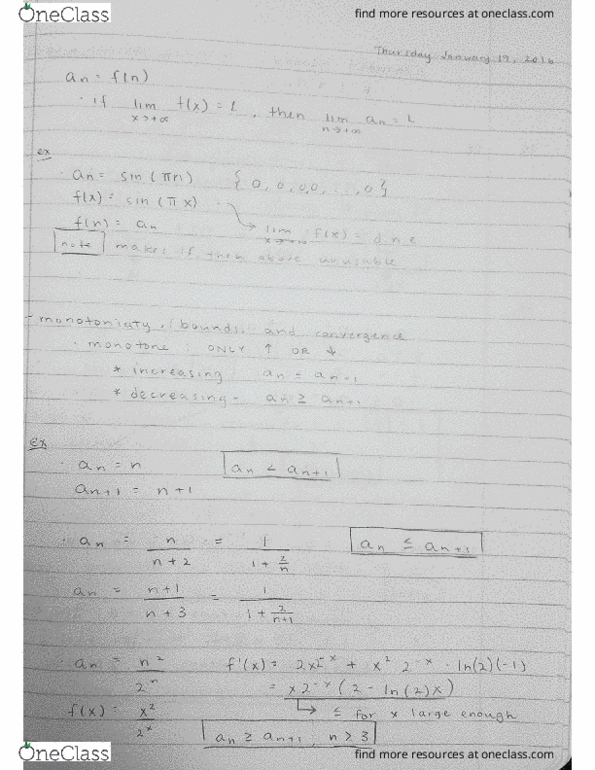 OneClass
find more resources at oneclass.com
Thursday January 19, 2016
an = f(n)
· if lim x→+∞ f(x) = L , then lim n→+∞ an = L
ex
· an = sin(πn) { 0, 0, 0,0, ..., 0 }
f(x) = sin(πx)
f(n) = an → lim x→+∞ f(x) = d.n.e
note makes if, then above unusable
- monotonicity, (bounds), and convergence
· monotone ONLY ↑ OR ↓
* increasing an = an+1
* decreasing - an ≥ an+1
ex
· an = n an < an+1
an+1 = n+1
· an = n / n+2 = 1 / 1 + 2/n an ≤ an+1
an = n+1 / n+3 = 1 / 1 + 2/n+1
· an = n² / 2ⁿ f'(x) = 2x2⁻ˣ + x² 2⁻ˣ · ln(2)(-1)
= x2⁻ˣ(2 - ln(2)x)
f(x) = x² / 2ˣ → ≤ for x large enough
an ≥ an+1, n ≥ 3
OneClass
find more resources at oneclass.com